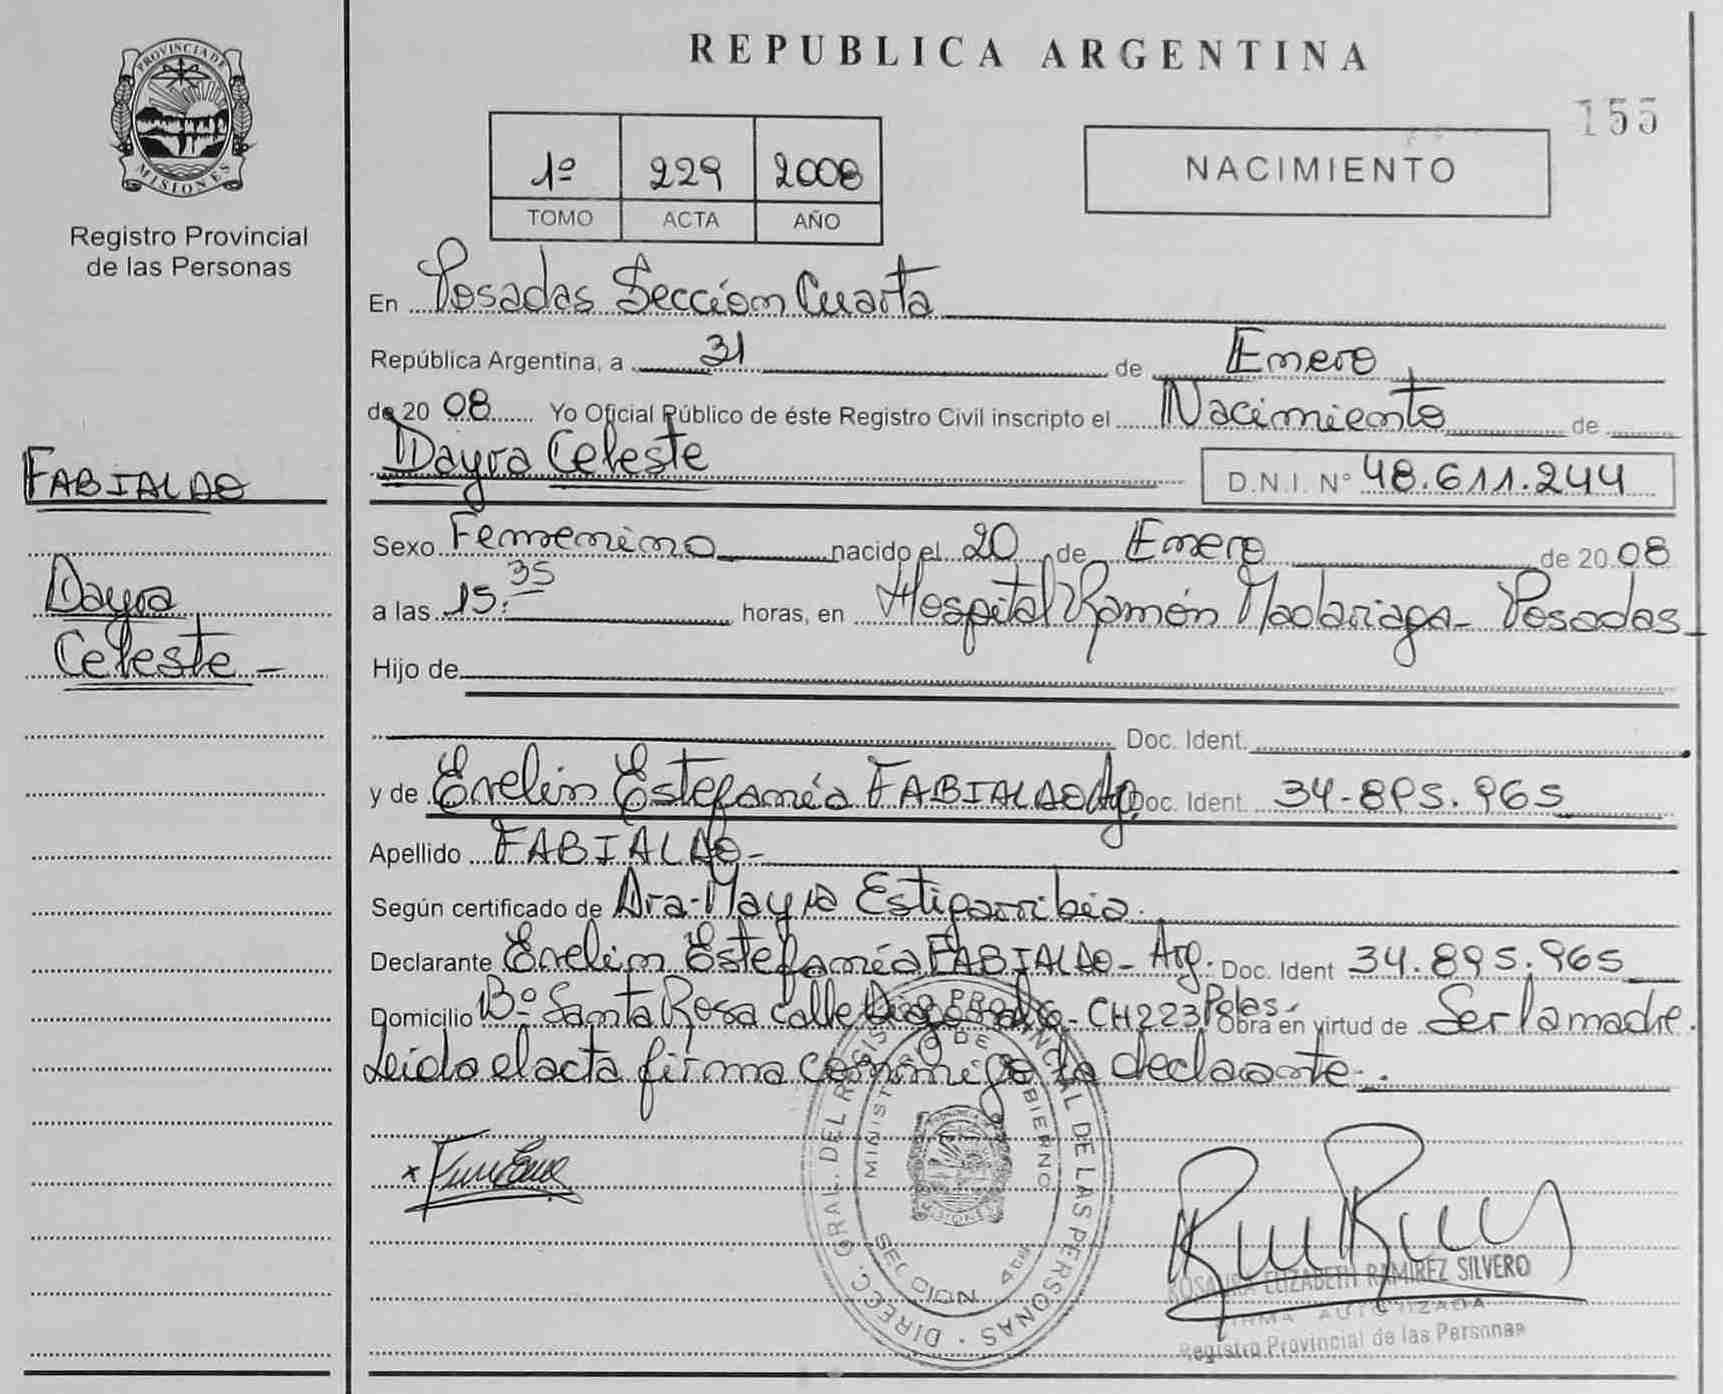 PROVINCIA DE
MISIONES
Registro Provincial
de las Personas
FABIALDO
Dayra
Celeste -
REPUBLICA ARGENTINA
155
1º 229 2008
TOMO ACTA AÑO
NACIMIENTO
En Posadas Sección Cuarta
República Argentina, a 31 de Enero
de 20 08 Yo Oficial Público de éste Registro Civil inscripto el Nacimiento de
Dayra Celeste D.N.I. Nº 48.611.244
Sexo Femenino nacido el 20 de Enero de 20 08
a las 15:35 horas, en Hospital Ramón Madariaga - Posadas
Hijo de
Doc. Ident.
y de Evelin Estefanía FABIALDO Arg. Doc. Ident. 34-895.965
Apellido FABIALDO-
Según certificado de Dra. Mayra Estigarribia.
Declarante Evelin Estefanía FABIALDO - Arg. Doc. Ident 34.895.965
Domicilio Bº Santa Rosa calle Diagonal - CH223 Pdas. Obra en virtud de Ser la madre.
Leida el acta firma conmigo la declarante.
DIRECC. GRAL. DEL REGISTRO PROVINCIAL DE LAS PERSONAS
MINISTERIO DE GOBIERNO
MISIONES
SECCION 4ta
ROSAURA ELIZABETH RAMIREZ SILVERO
FIRMA AUTORIZADA
Registro Provincial de las Personas